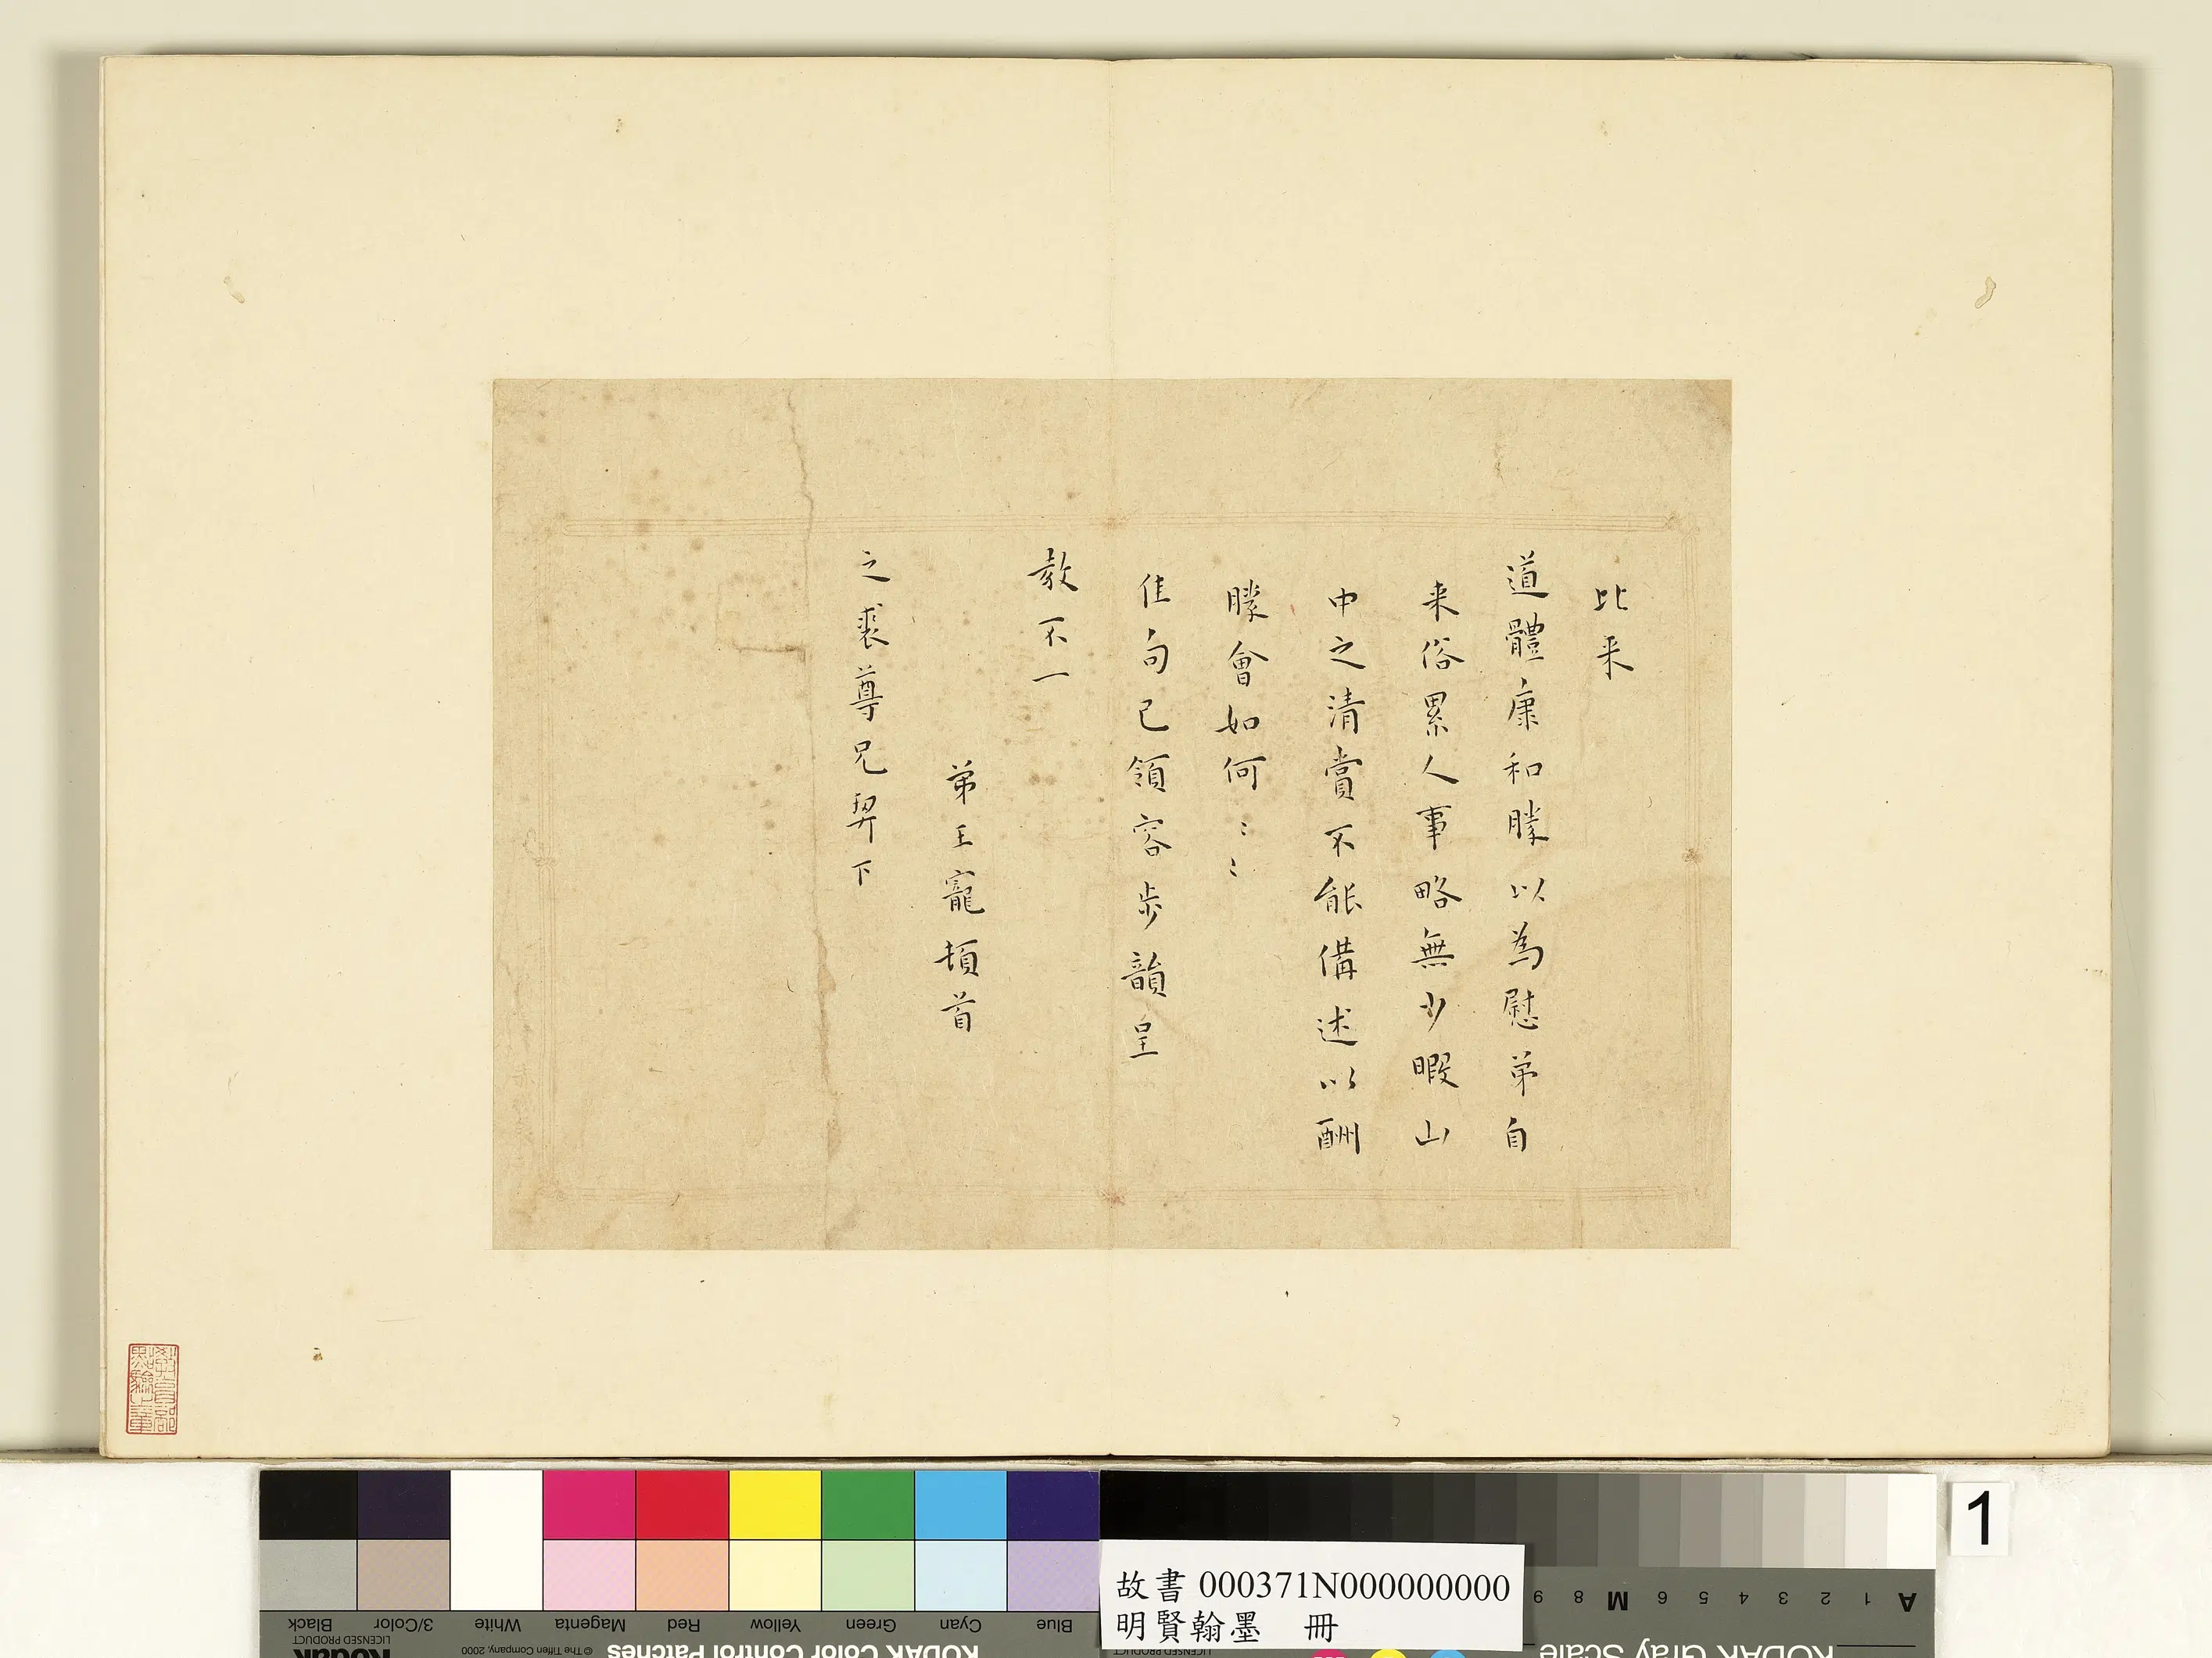 比来
道體康和勝以為慰弟自
来俗累人事略無少暇山
中之清賞不能備述以酬
勝會如何〻〻
佳句已領容步韻呈
教不一
弟王寵頓首
之裘尊兄契下
教育部
點驗之章
1
故書000371N000000000
明賢翰墨 冊
Blue Cyan Green Yellow Red Magenta White 3/Color Black
KODAK Color Control Patches
© The Tiffen Company, 2000
Kodak
LICENSED PRODUCT
KODAK Gray Scale
LICENSED PRODUCT
A 1 2 3 4 5 6 M 8 9